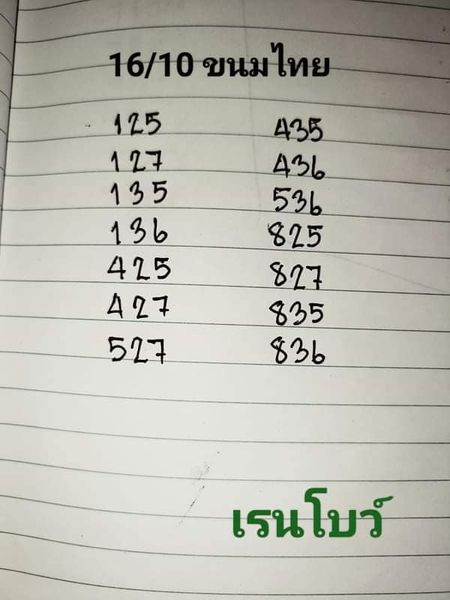 16/10 ขนมไทย
125 435
127 436
135 536
136 825
425 827
427 835
527 836
เรนโบว์